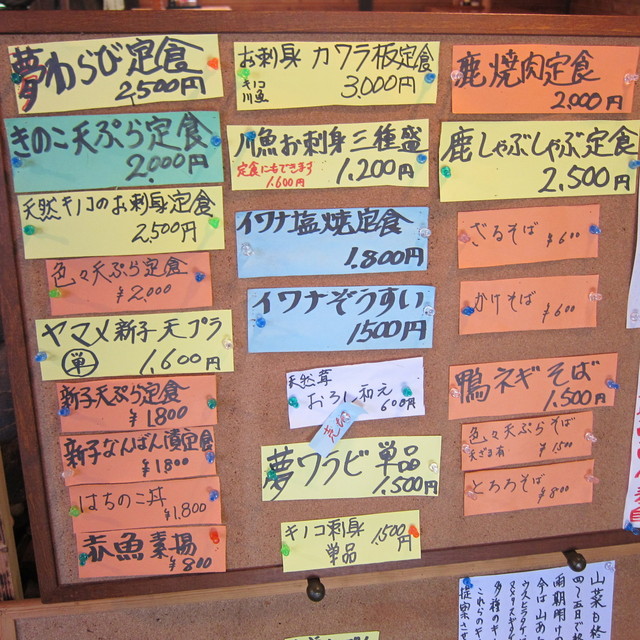 夢わらび定食
2,500円
きのこ天ぷら定食
2,000円
天然キノコのお刺身定食
2,500円
色々天ぷら定食
¥2,000
ヤマメ新子天プラ
単 1,600円
新子天ぷら定食
¥1800
新子なんばん漬定食
¥1800
はちのこ丼
¥1.800
赤魚素揚
¥800
お刺身カワラ板定食
キノコ
川魚
3,000円
川魚お刺身三種盛
定食にもできます
1,600円
1,200円
イワナ塩焼定食
1.800円
イワナぞうすい
1500円
天然茸
おろし和え
600円
売切
夢ワラビ単品
1,500円
キノコ刺身
単品
1500円
鹿焼肉定食
2,000円
鹿しゃぶしゃぶ定食
2,500円
ざるそば
¥600
かけそば
¥600
鴨ネギそば
1,500円
色々天ぷらそば
天ざる有 ¥1500
とろろそば
¥800